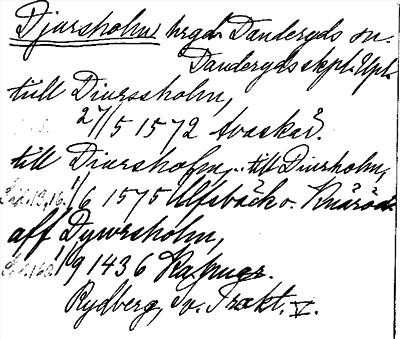 Djursholm hrgd. Danderyds sn.
Danderyds skpl. Upl.
till Diurssholm,
27/5 1572 Avaskär.
till Diursholm, .. till Diursholm,
1/6 1575 Ulfsbäck o. Knäröd
aff Dywrsholm,
1/9 1436
Rydberg, Sv. Trakt. V.